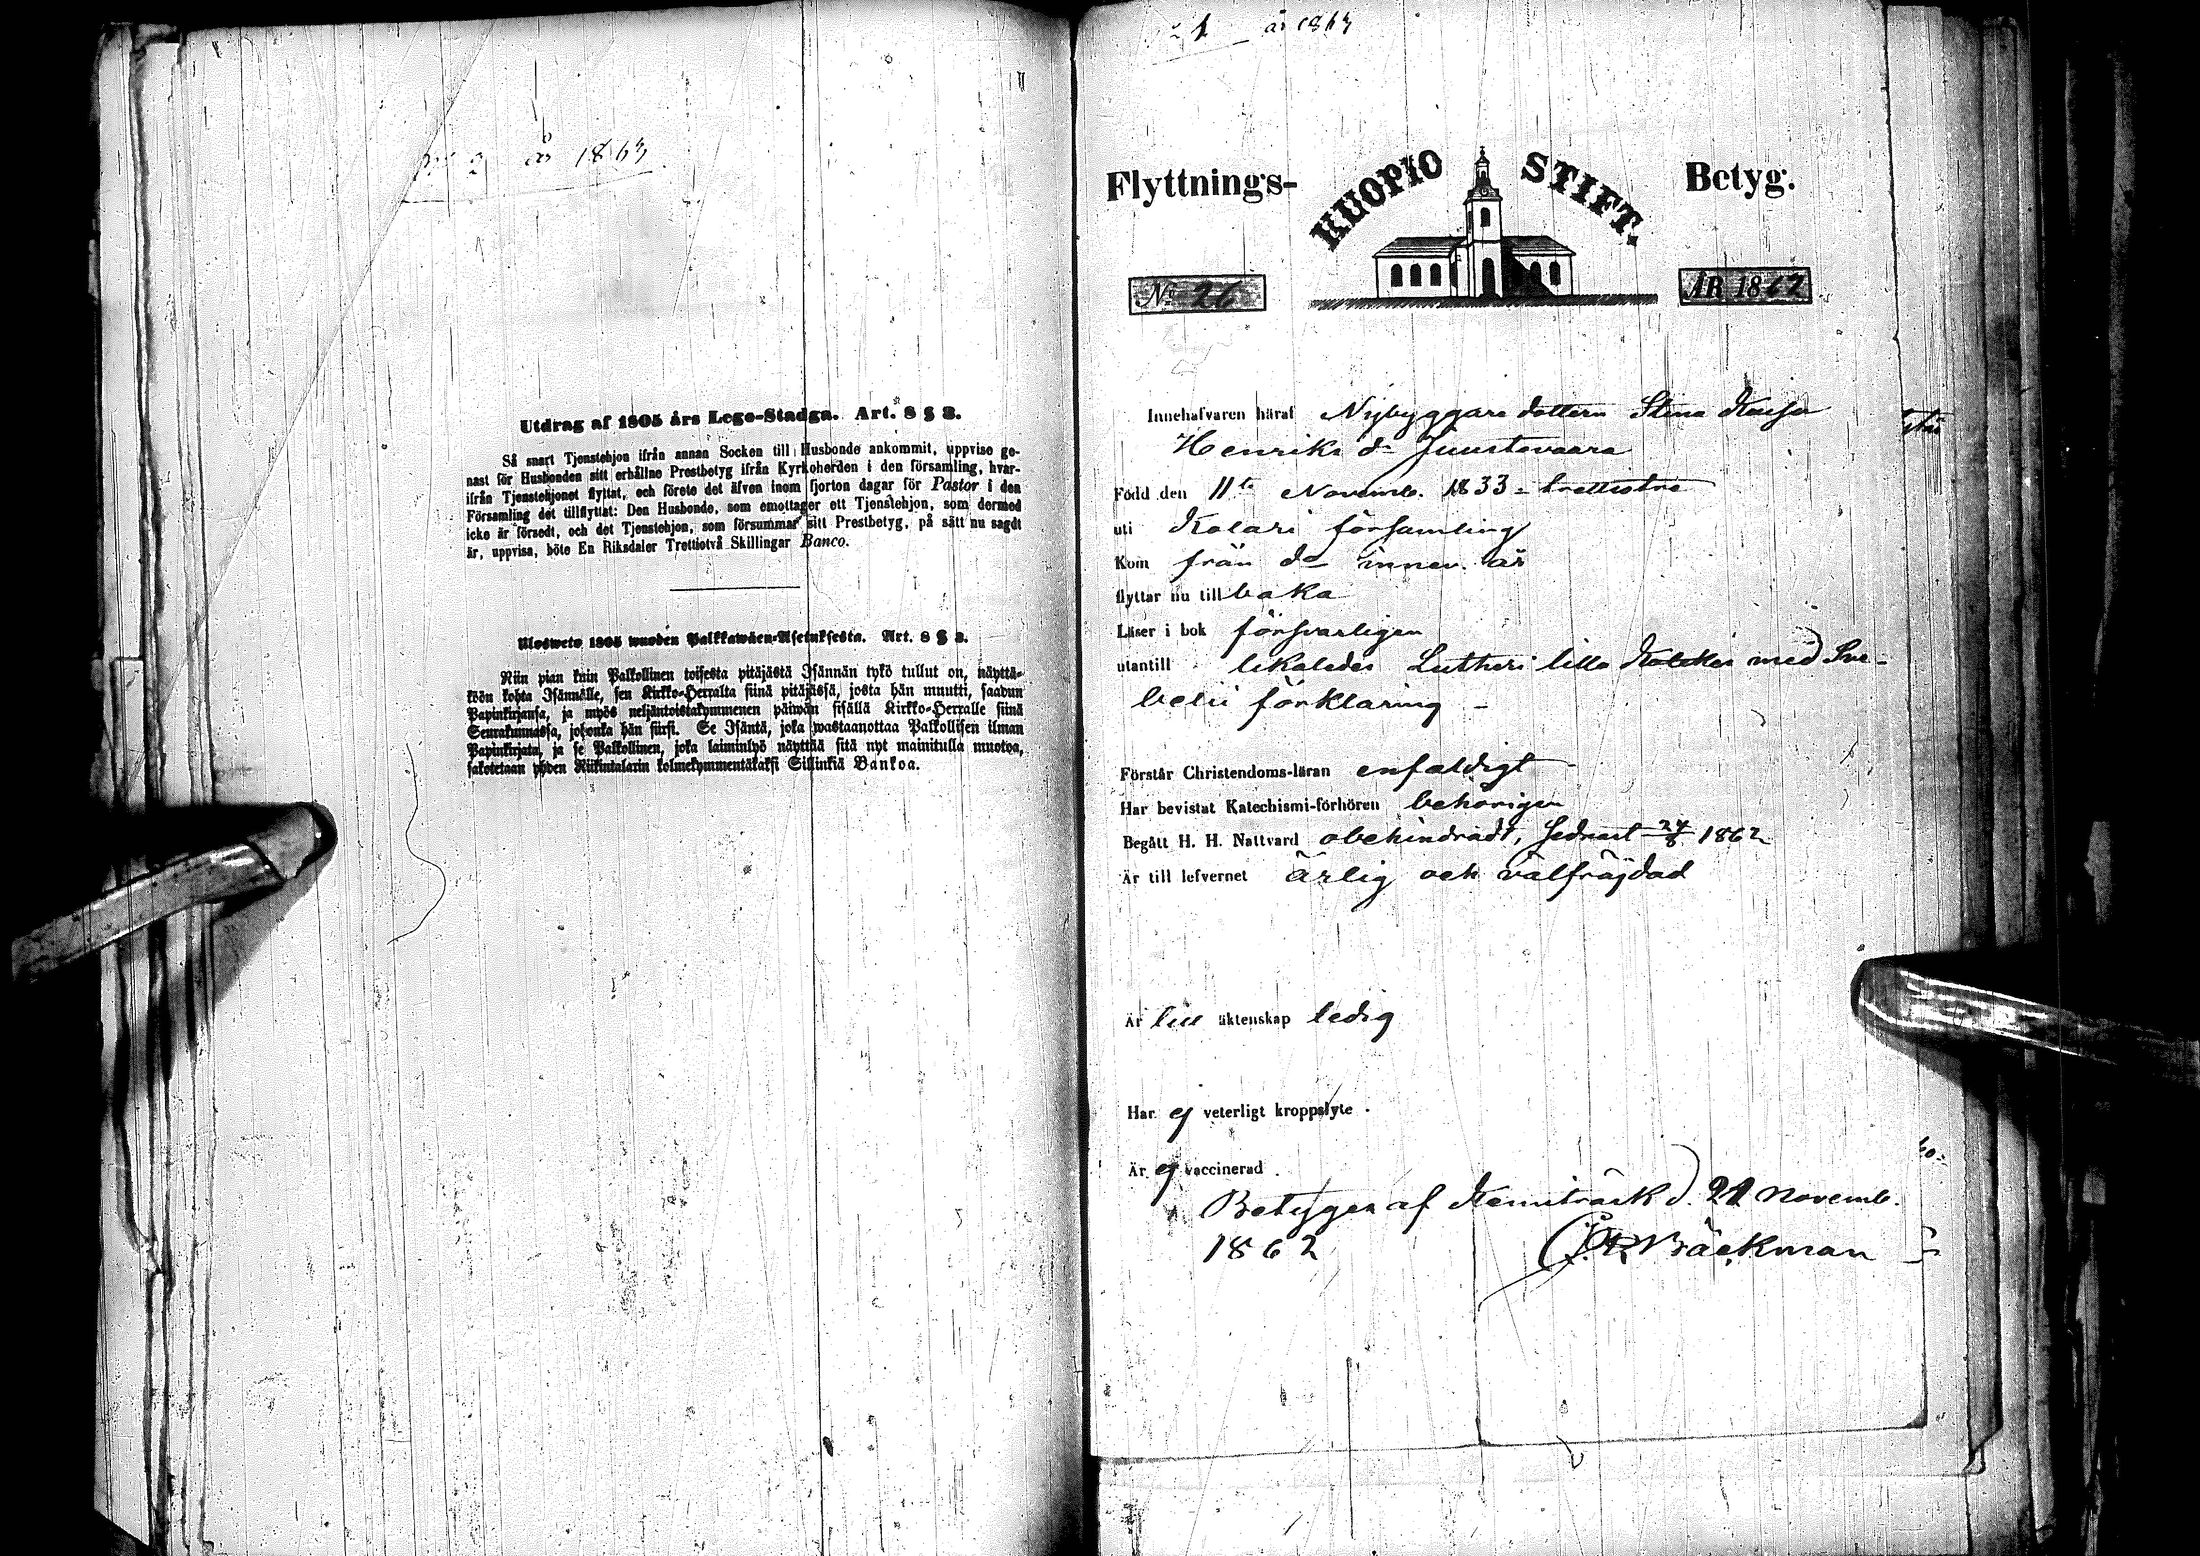 år 1863
Utdrag af 1805 års Lego-Stadga. Art. 8 § 3.
Så snart Tjenstehjon ifrån annan Socken till Husbonde ankommit, uppvise ge-
nast för Husbonden sitt erhållne Prestbetyg ifrån Kyrkoherden i den församling, hvar-
ifrån Tjenstehjonet flyttat, och förete det äfven inom fjorton dagar för Pastor i den
Församling det tillflyttat: Den Husbonde, som emottager ett Tjenstehjon, som dermed
icke är försedt, och det Tjenstehjon, som försummar sitt Prestbetyg, på sätt nu sagdt
är, uppvisa, böte En Riksdaler Trettiotvå Skillingar Banco.
Ulosweto 1805 wuoden Palkkawäen-Asetuksesta. Art. 8 § 3.
Niin pian kuin Palkollinen toisesta pitäjästä Isännän tykö tullut on, näyttä-
köön kohta Isännälle, sen Kirkko-Herralta siinä pitäjässä, josta hän muutti, saadun
Papinkirjansa, ja myös neljäntoistakymmenen päiwän sisällä Kirkko-Herralle siinä
Seurakunnassa, johonka hän siirsi. Se Isäntä, joka wastaanottaa Palkollisen ilman
Papinkirjata, ja se Palkollinen, joka laiminlyö näyttää sitä nyt mainitulla muotoa,
sakotetaan yhden Riikintalarin kolmekymmentäkaksi Sillinkiä Bankoa.
1 år 1863
Flyttnings- HUOPIO STIFT. Betyg.
No 26 ÅR 1862
Innehafvaren häraf Nybyggare dottern Stina Kaisa
Henriks dr Juustovaara
Född den 11te Novemb. 1833 - trettiotre
uti Kolari församling
Kom från do innev. år
flyttar nu till baka
Läser i bok försvarligen
utantill likaledes Lutheri lilla Kateches med Sve-
belii förklaring -
Förstår Christendoms-läran enfaldigt
Har bevistat Katechismi-förhören behörigen
Begått H. H. Nattvard obehindradt, sednast 24/8 1862
Är till lefvernet ärlig och välfräjdad
Är till äktenskap ledig
Har ej veterligt kroppslyte.
Är ej vaccinerad.
Betygar af Kemiträsk d. 21 Novemb.
1862 Bäckman